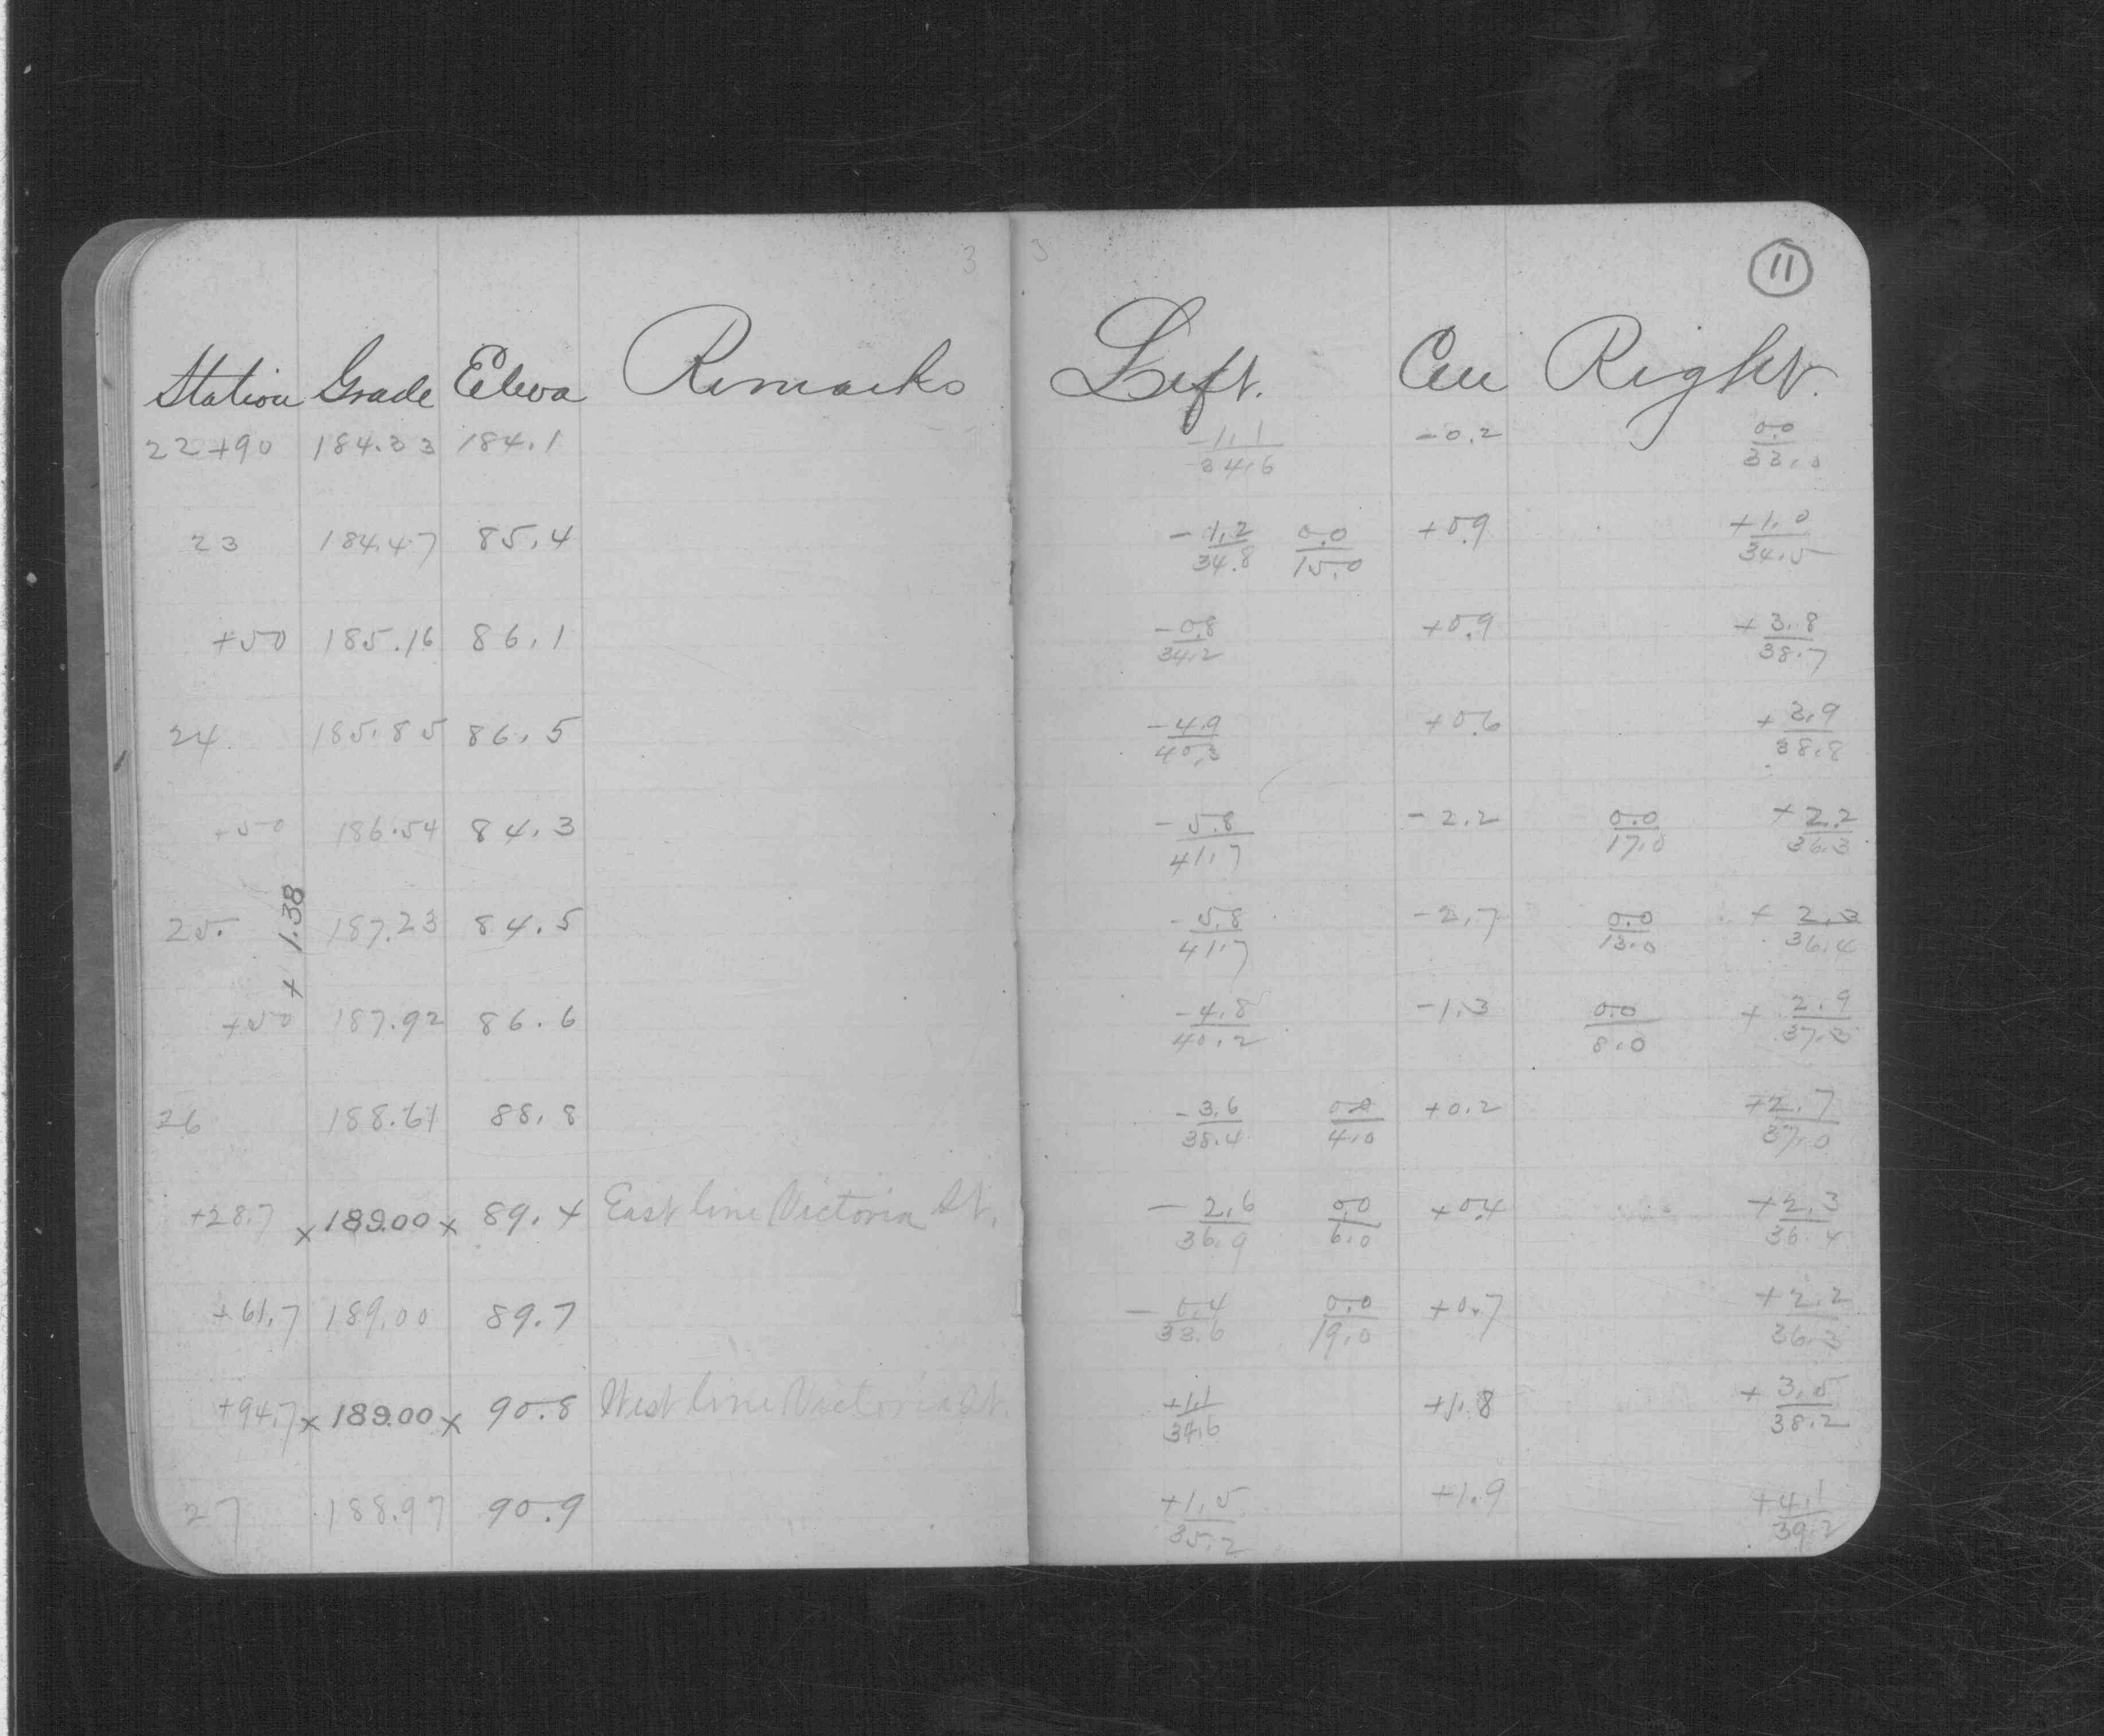 3 3 11
Station Grade Eleva Remarks Left. Cen Right.
22+90 184.33 184.1 -1.1/34.6 -0.2 0.0/33.0
23 184.47 85.4 -1.2/34.8 0.0/15.0 +0.9 +1.0/34.5
+50 185.16 86.1 -0.8/34.2 +0.9 +3.8/38.7
24 185.85 86.5 -4.9/40.3 +0.6 +3.9/38.8
+50 186.54 84.3 -5.8/41.7 -2.2 0.0/17.0 +2.2/36.3
25. 187.23 84.5 -5.8/41.7 -2.7 0.0/13.0 +2.3/36.4
+ 1.38
+50 187.92 86.6 -4.8/40.2 -1.3 0.0/8.0 +2.9/37.3
26 188.61 88.8 -3.6/38.4 0.0/4.0 +0.2 +2.7/37.0
+28.7 x 189.00 x 89.4 East line Victoria St. -2.6/36.9 0.0/6.0 +0.4 +2.3/36.4
+61.7 189.00 89.7 -0.4/33.6 0.0/19.0 +0.7 +2.2/36.3
+94.7 x 189.00 x 90.8 West line Victoria St. +1.1/34.6 +1.8 +3.5/38.2
27 188.97 90.9 +1.5/35.2 +1.9 +4.1/39.2